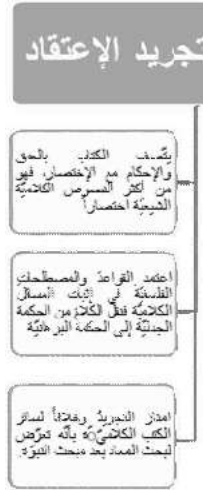 تجريد الإعتقاد
يتّصف الكتاب بالدقّة
والإحكام مع الإختصار، فهو
من أكثر النصوص الكلاميّة
الشيعيّة اختصاراً
اعتمد القواعد والمصطلحات
الفلسفيّة في إثبات المسائل
الكلاميّة فنقل الكلام من الحكمة
الجدليّة إلى الحكمة البرهانيّة
امتاز التجريدُ وخلافاً لسائر
الكتب الكلاميّة بأنّه تعرّض
لبحث المعاد بعد مبحث النبوّة.